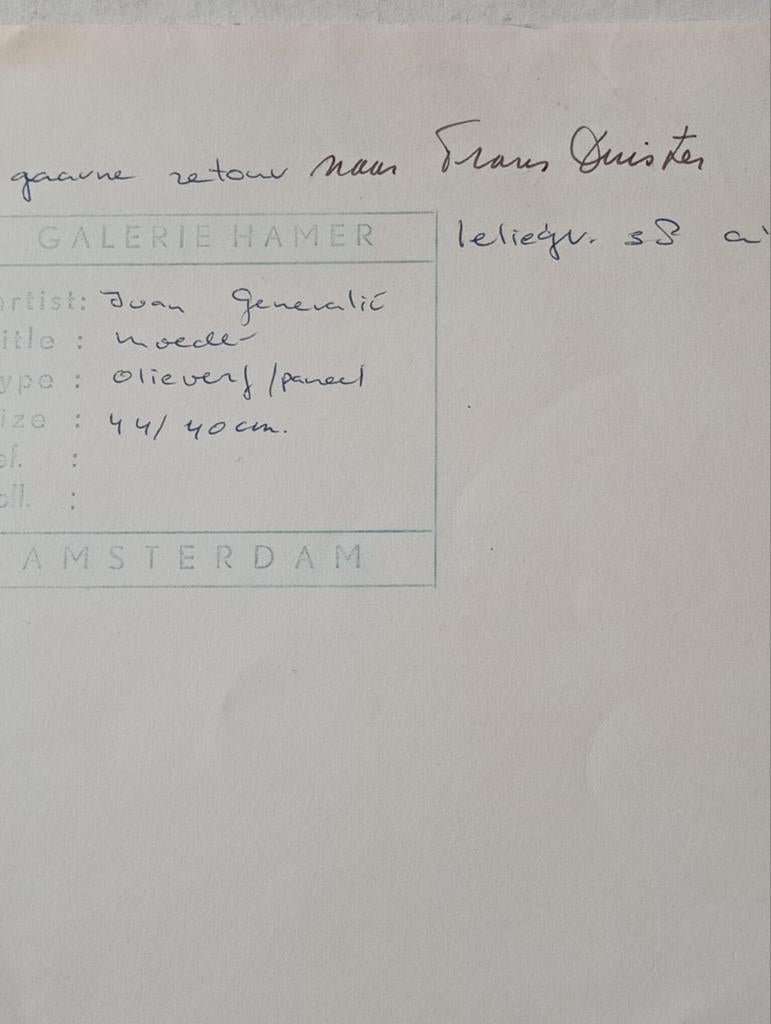 gaarne retour naar Frans Duister
leliegr. 38 a'
GALERIE HAMER
artist: Ivan Generalić
title : moeder
type : olieverf/paneel
size : 44/40cm.
ef. :
oll. :
AMSTERDAM